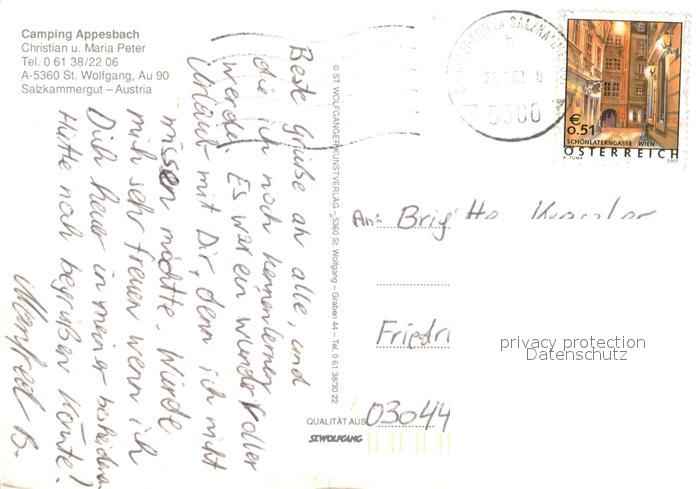 Camping Appesbach
Christian u. Maria Peter
Tel. 0 61 38/22 06
A-5360 St. Wolfgang, Au 90
Salzkammergut – Austria
Beste Grüße an alle, und
die ich noch kennenlernen
werde. Es war ein wundervoller
Urlaub mit Dir, denn ich nicht
missen möchte. Würde
mich sehr freuen wenn ich
Dich heuer in meiner bescheidenen
Hütte noch begrüßen könnte!
Manfred B.
© ST. WOLFGANGER KUNSTVERLAG - 5360 St. Wolfgang – Graben 44 – Tel. 0 61 38/30 22
5360
€
0.51
SCHÖNLATERNGASSE WIEN
ÖSTERREICH
A. TUMA
2002
An: Brigitte
Friedri
03044
privacy protection
Datenschutz
QUALITÄT AUS
ST.WOLFGANG